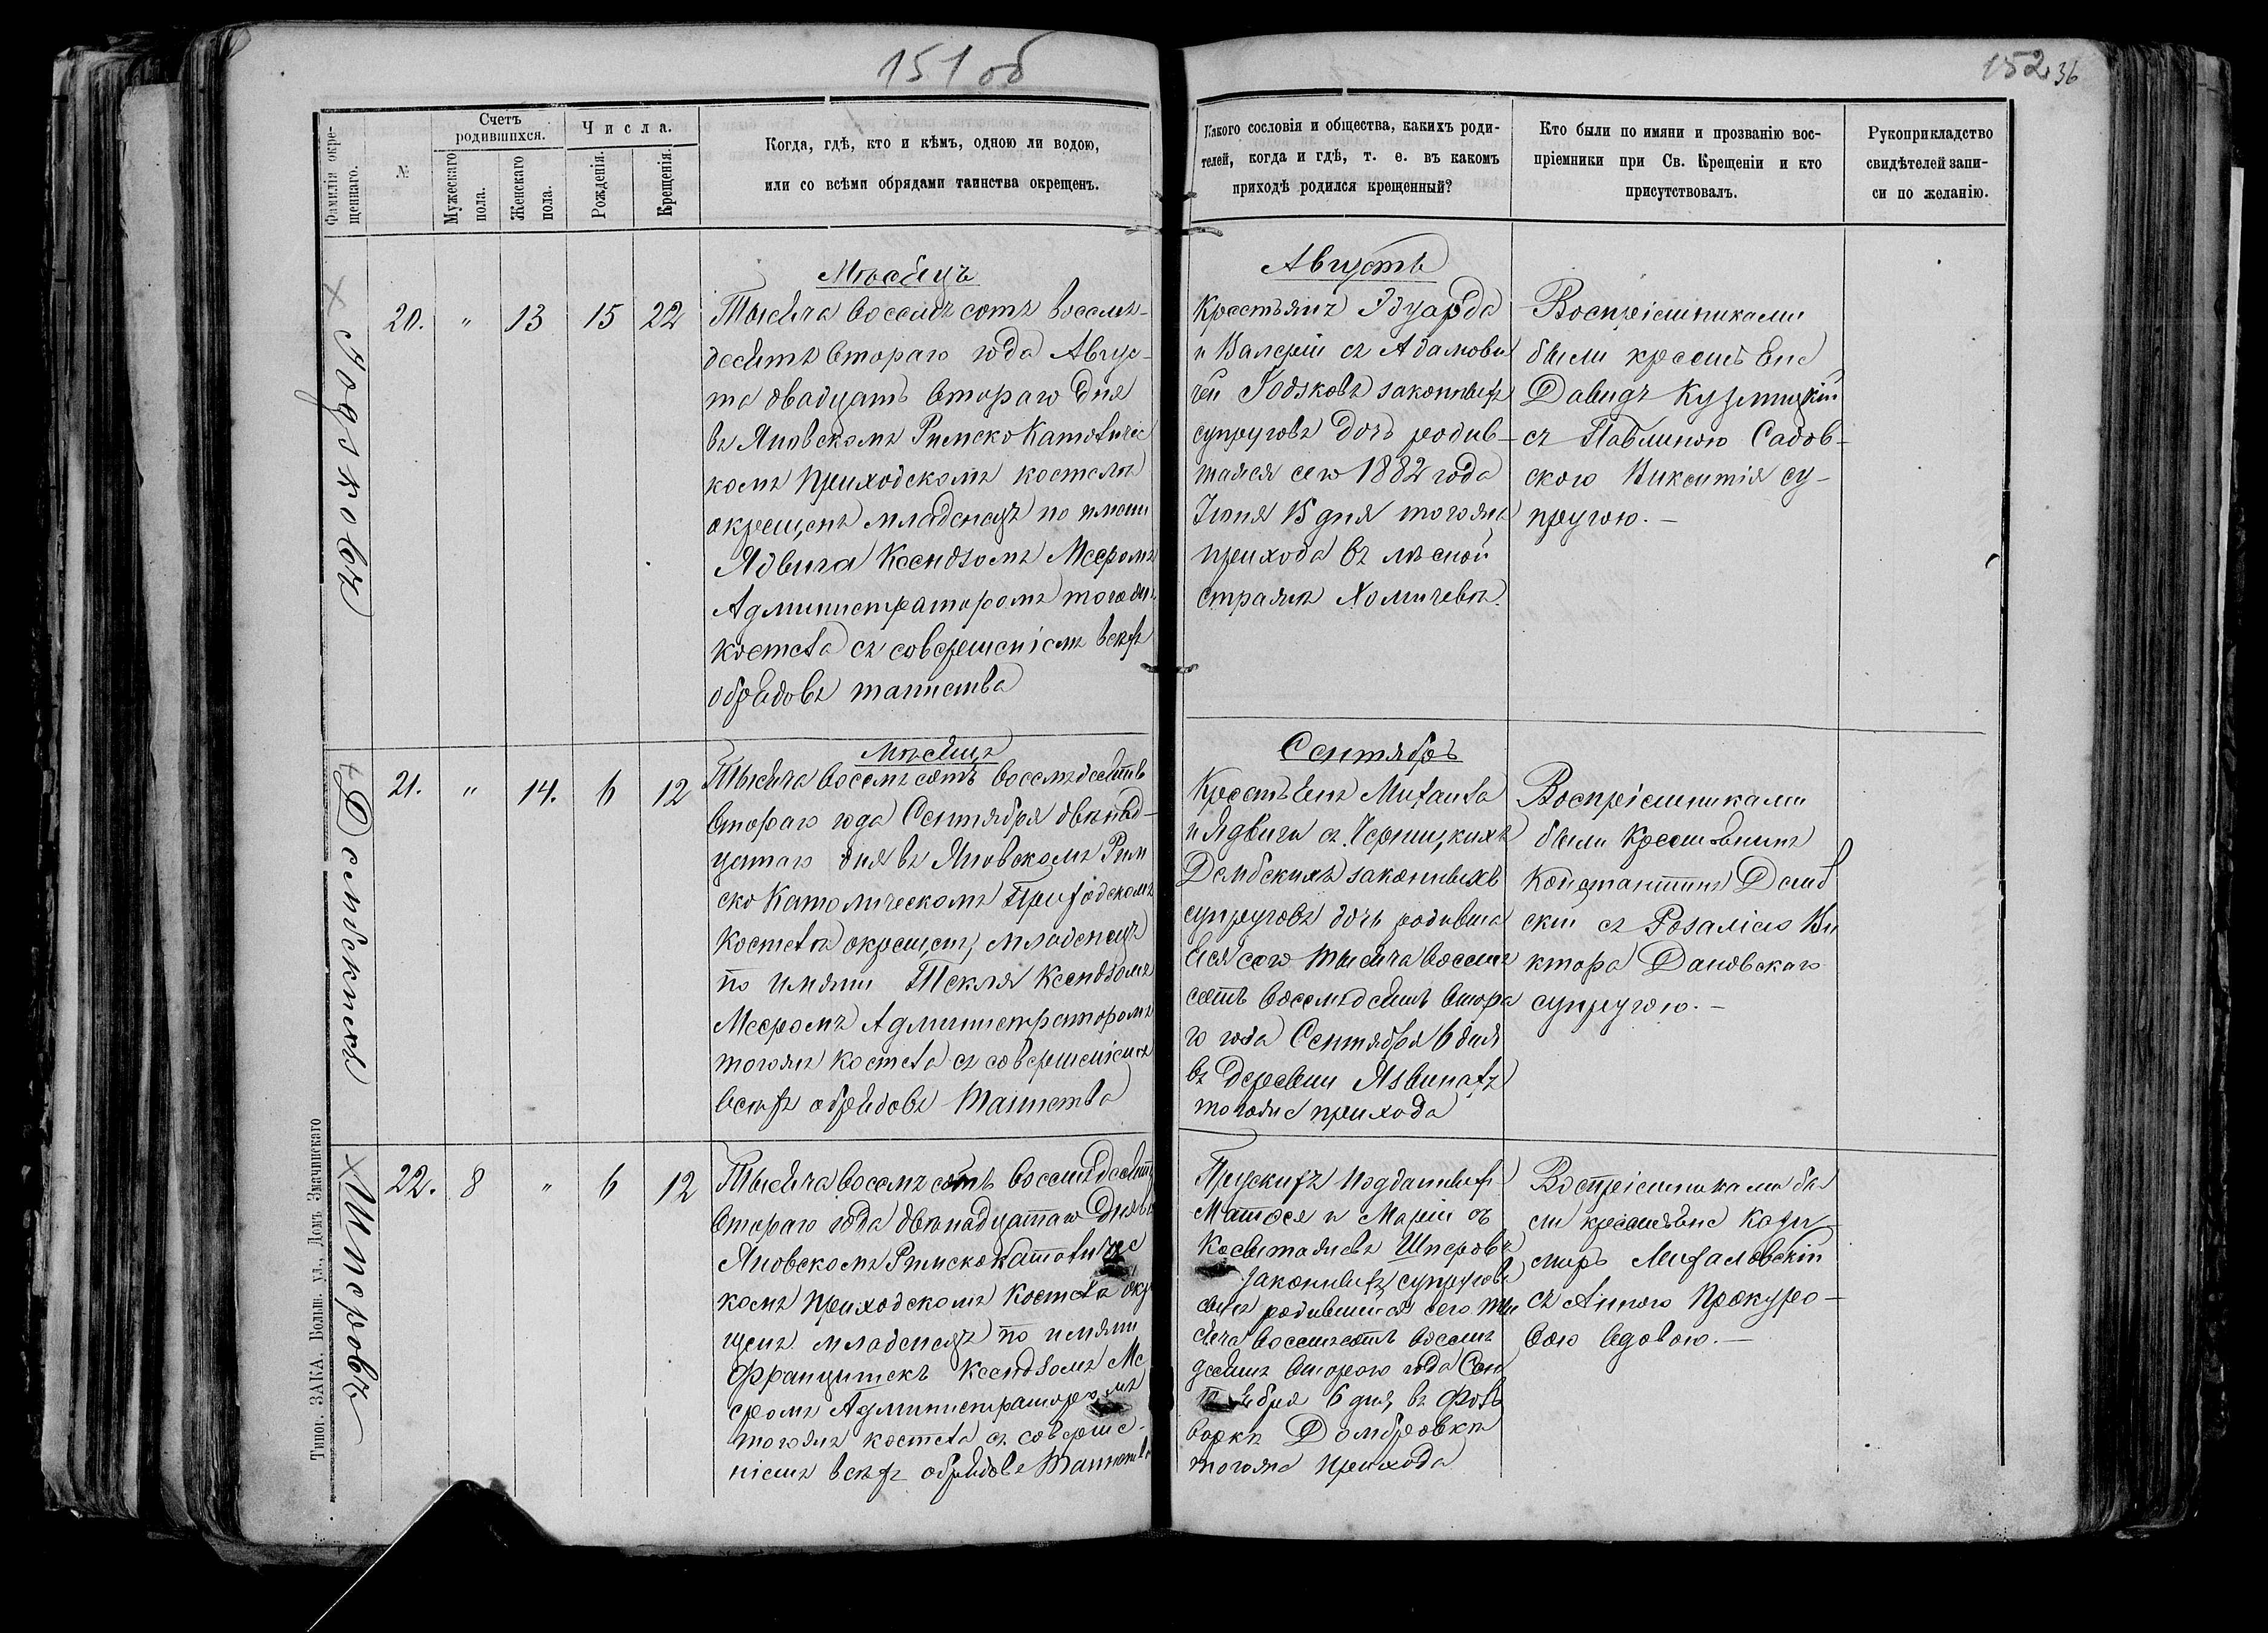 151 об
152 36
Фамилія окре-
щеннаго.
№
Счетъ
родившихся.
Мужескаго
пола.
Женскаго
пола.
Числа.
Рожденія.
Крещенія.
Когда, гдѣ, кто и кѣмъ, одною ли водою,
или со всѣми обрядами таинства окрещенъ.
Какого сословія и общества, какихъ роди-
телей, когда и гдѣ, т. е. въ какомъ
приходѣ родился крещенный?
Кто были по имяни и прозванію вос-
пріемники при Св. Крещеніи и кто
присутствовалъ.
Рукоприкладство
свидѣтелей запи-
си по желанію.
Годзковъ
20. " 13 15 22
Мѣсяцъ
Тысяча восемъ сотъ восемь-
десятъ втораго года Авгус-
та двадцать втораго дня
въ Яновскомъ Римско Католичес
комъ приходскомъ костелѣ
окрещенъ младенецъ по имени
Ядвига Ксендзомъ Месромъ
Администраторомъ тогожъ
костела съ совершеніемъ всѣхъ
обрядовъ таинства
Августъ
Крестьянъ Эдуарда
и Валеріи съ Адамови
чей Годзковъ законныхъ
супруговъ дочь родив-
шаяся сего 1882 года
Іюня 15 дня тогожа
прихода въ лѣсной
стражѣ Хомичевѣ.
Воспріемниками
были крестьяне
Давидъ Кузмицкій
съ Павлиною Садов-
скою Викентія су-
пругою.-
Дембскихъ
21. " 14. 6 12
Мѣсяцъ
Тысяча восемъ сотъ восемъдесятъ
втораго года Сентября двѣнад-
цатаго дня въ Яновскомъ Рим
ско Католическомъ Приходскомъ
Костелѣ окрещенъ младенецъ
по имяни Текля Ксендзомъ
Месромъ Администраторомъ
тогожъ костела съ совершеніемъ
всѣхъ обрядовъ Таинства
Сентябрь
Крестьянъ Михаила
и Ядвиги съ Черницкихъ
Дембскихъ законныхъ
супруговъ дочь родивша
яся сего тысяча восемъ
сотъ восемдесятъ втора
го года Сентября 6 дня
въ деревни Язвинахъ
тогоже прихода
Воспріемниками
были Крестьянинъ
Константинъ Демб
скій съ Розаліею Ви
ктора Дановскаго
супругою.-
Шперовъ
22. 8 " 6 12
Тысяча восемъ сотъ восемьдесятъ
втораго года двѣнадцатаго Дня въ
Яновскомъ Римскокатоличес
комъ приходскомъ Костелѣ окре
щенъ младенецъ по имяни
Францишекъ Ксендзомъ Ме
сромъ Администраторомъ
тогожъ костела съ соверше-
ніемъ всѣхъ обрядовъ Таинства
Прускихъ подданныхъ
Матфея и Маріи съ
Шперовъ
законныхъ супруговъ
сынъ родившійся сего ты
сяча восемъ сотъ восемъ
десятъ второго года Сен
тября 6 дня, въ Фоль
варкѣ Домбровкѣ
тогожа прихода
Воспріемниками бы
ли крестьяне Кази-
миръ Михаловскій
съ Анною Прокуро-
вою вдовою.-
Типог. ЗАКА, Больш. ул., Домъ Значинскаго